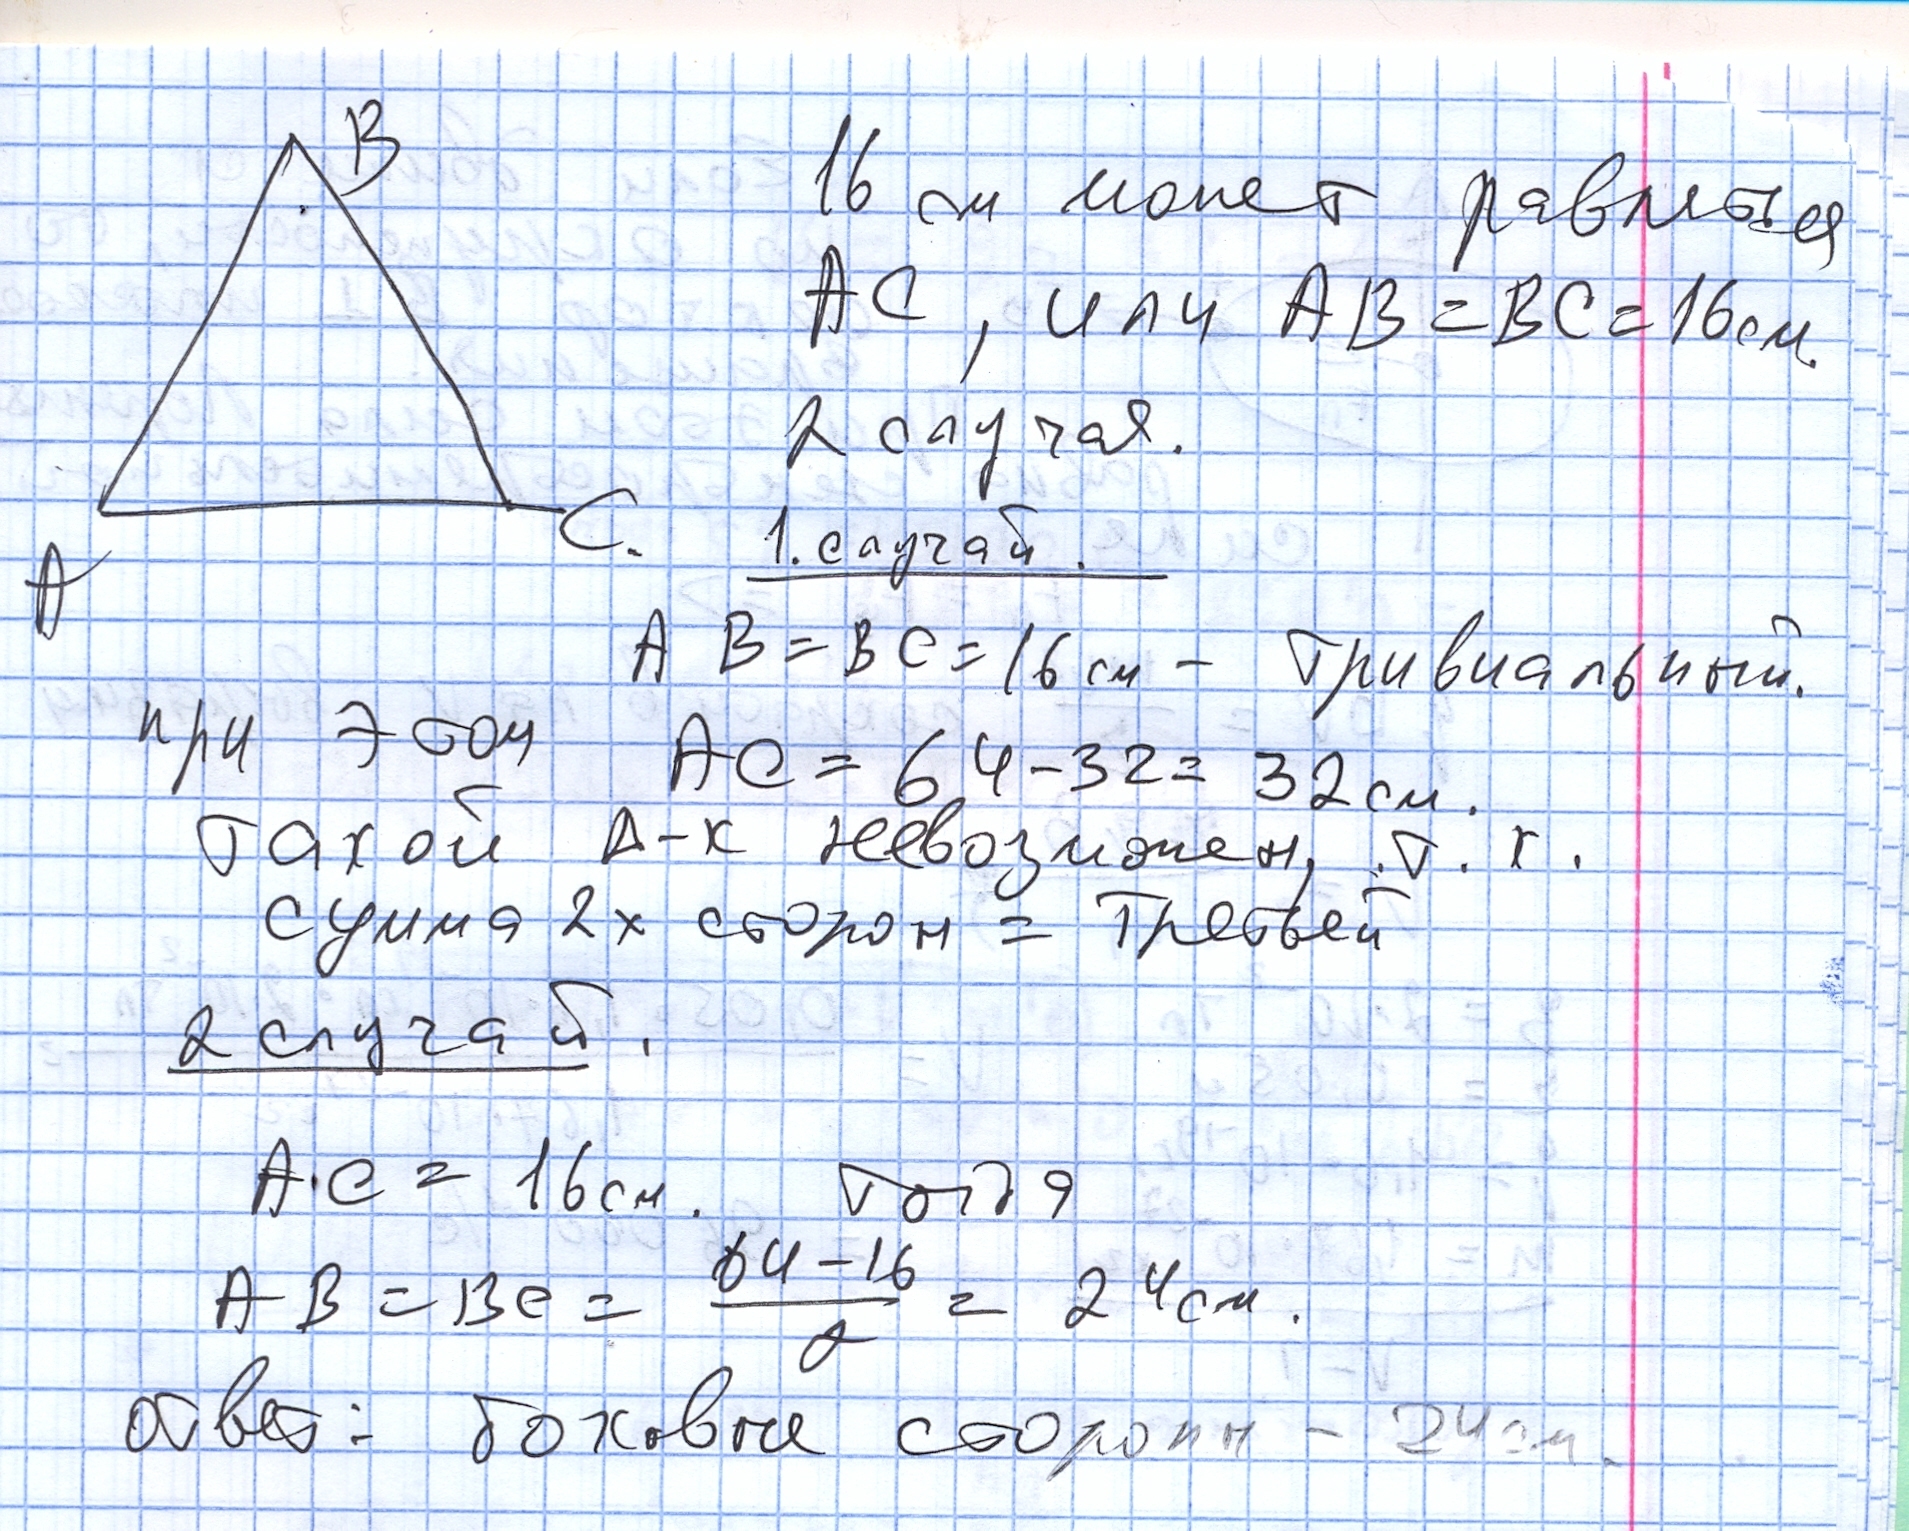 B
16 см может равняться
AC, или AB=BC=16см.
2 случая.
C.
1. случай.
A
AB=BC=16см - тривиальный.
при этом AC=64-32=32см.
такой Δ-к невозможен, т.к.
сумма 2х сторон = третьей
2 случай.
AC = 16см. Тогда
AB=BC= 64-16 / 2 = 24см.
ответ: боковые стороны - 24см.